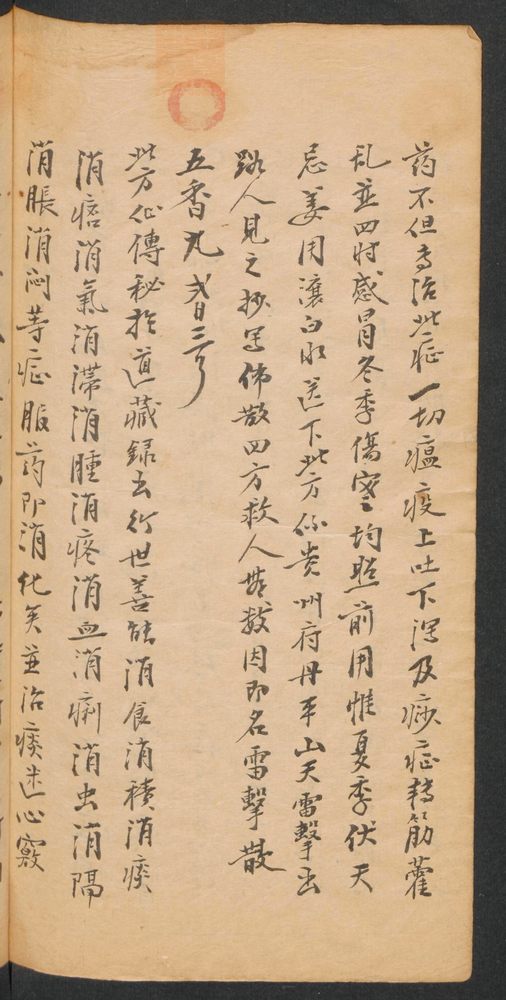 药不但专治此症一切瘟疫上吐下泻及痧症转筋藿
乱並四时感冒冬季傷寒均照前用惟夏季伏天
忌姜用滚白水送下此方係贵州府丹平山天雷擊出
路人見之抄写佈散四方救人無数因即名雷擊散
五香丸
此方從傳秘於道藏録出行世善能消食消積消痰
消痞消氣消滞消腫消疼消血消痢消虫消隔
消脹消闷等症服药即消化矣並治痰迷心竅